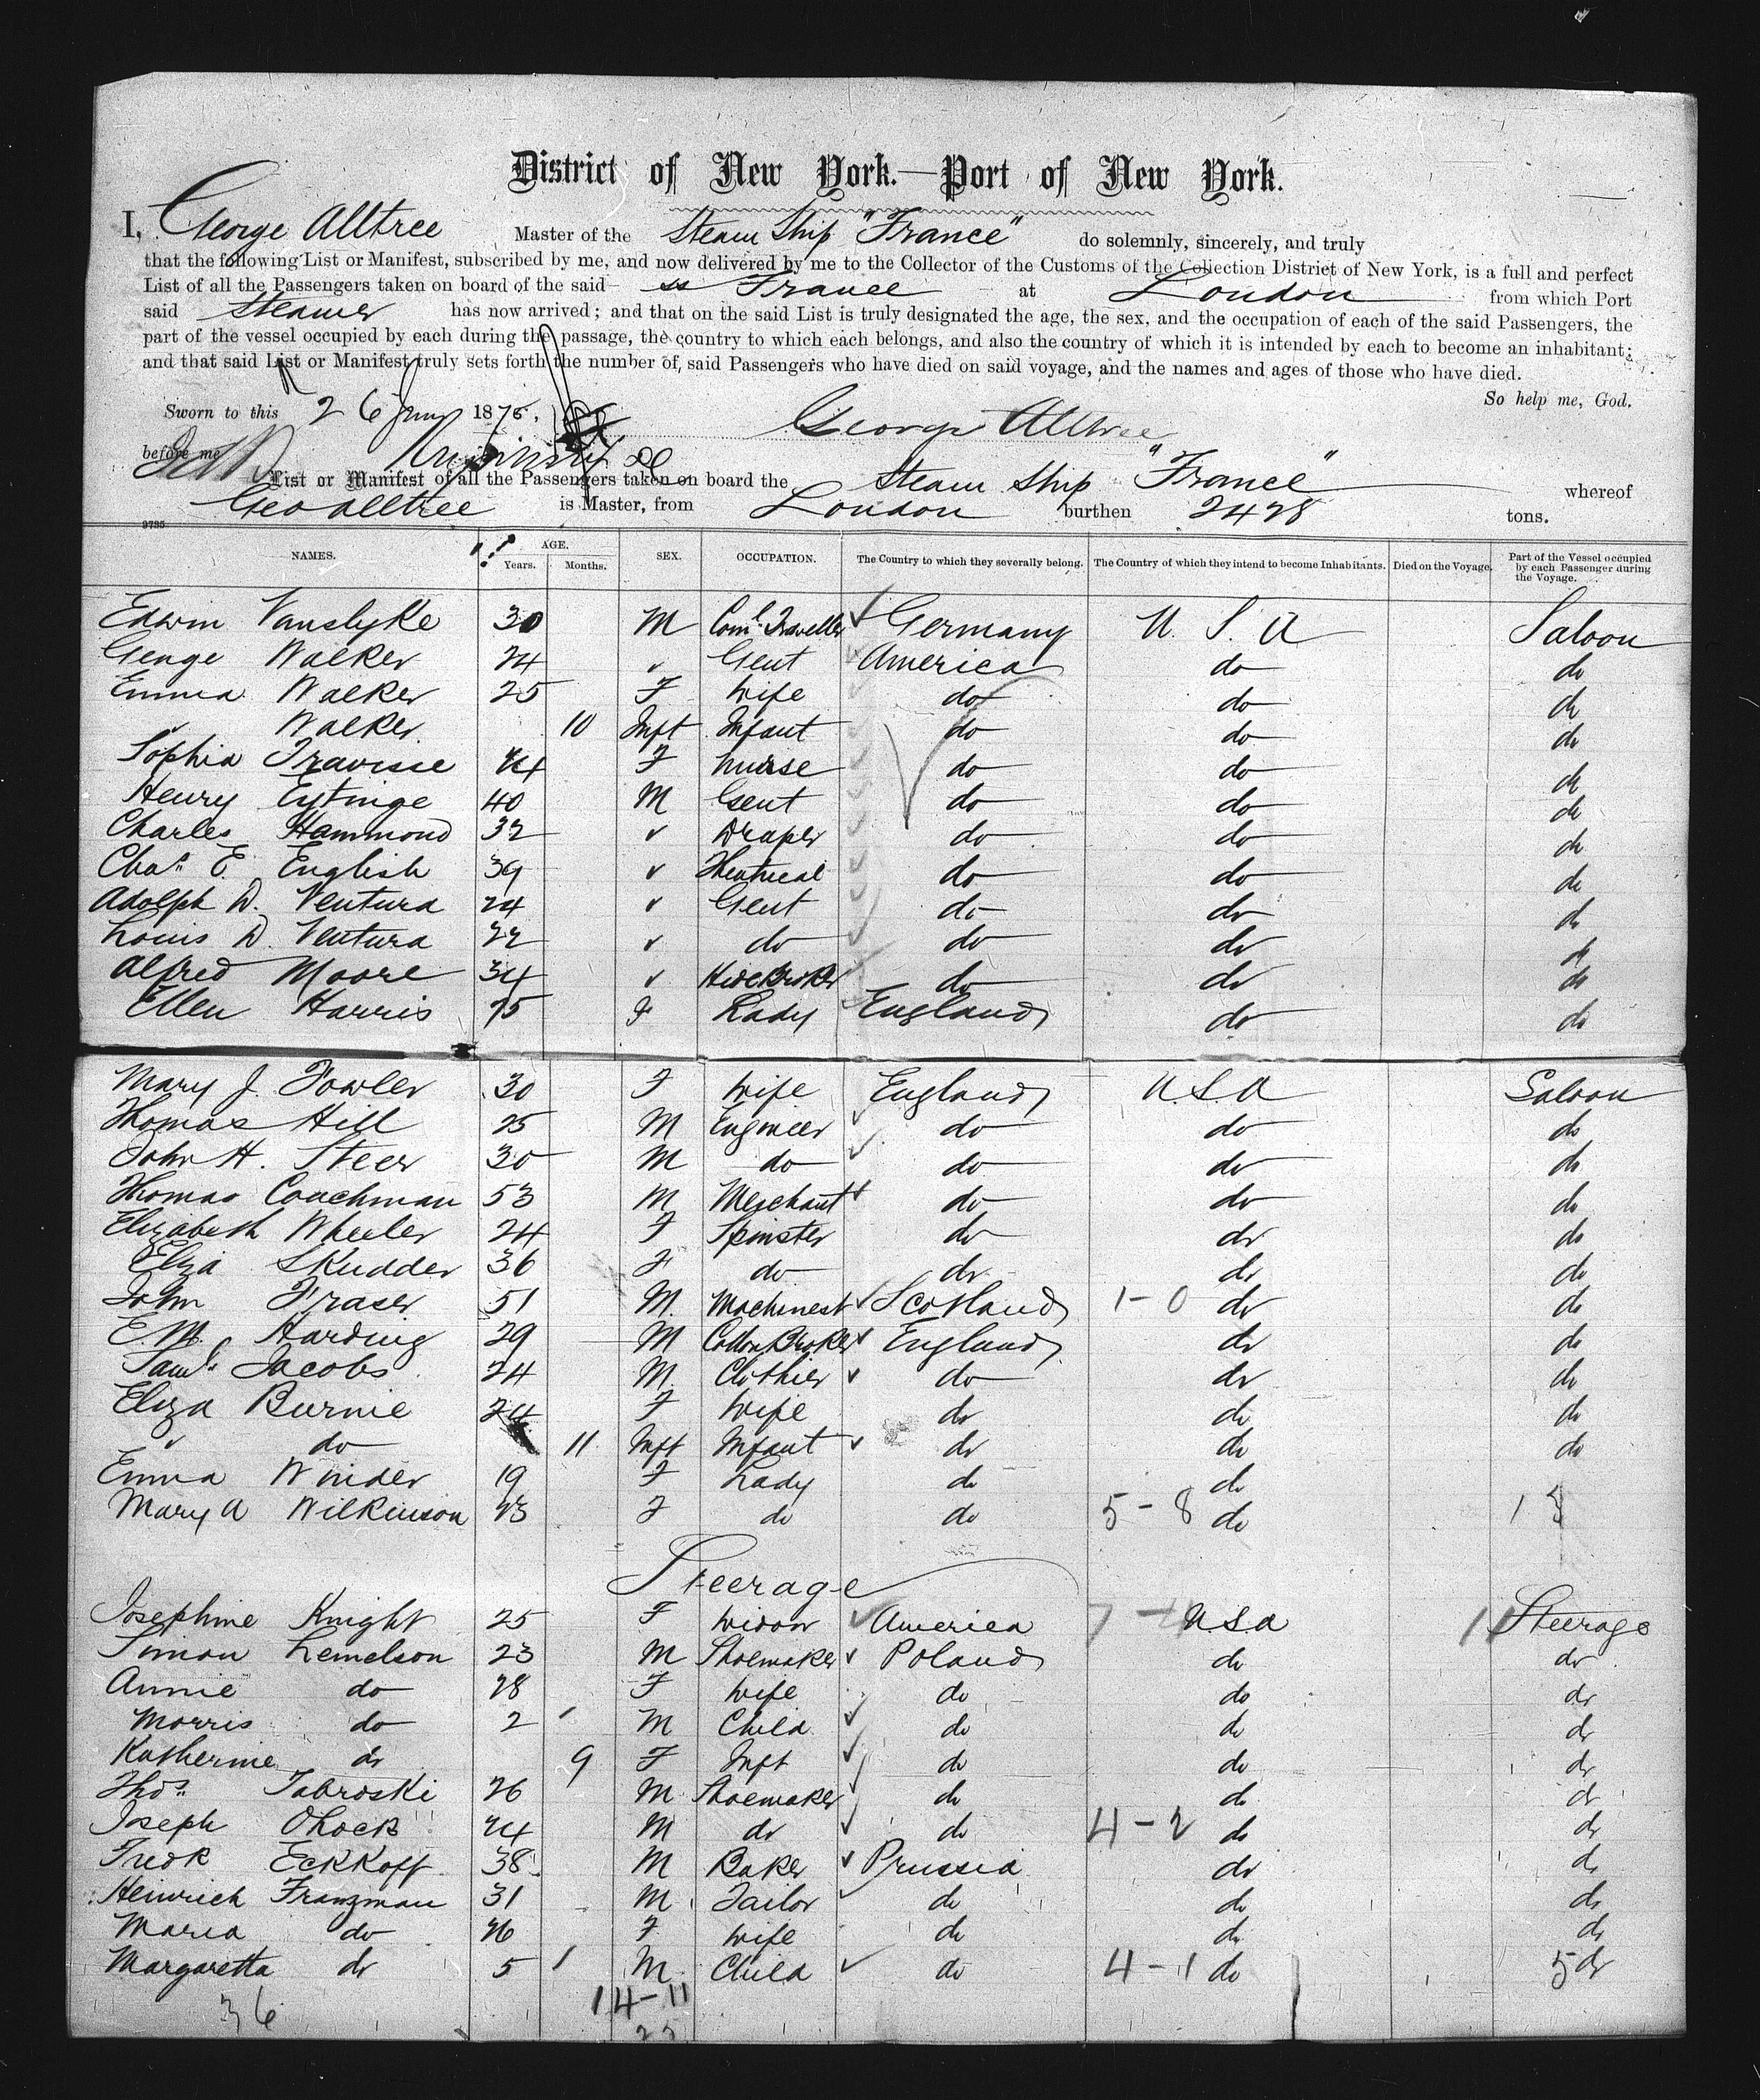 District of New York.—Port of New York.
I, George Alltree Master of the Steam Ship "France" do solemnly, sincerely, and truly
that the following List or Manifest, subscribed by me, and now delivered by me to the Collector of the Customs of the Collection District of New York, is a full and perfect
List of all the Passengers taken on board of the said ss France at London from which Port
said Steamer has now arrived; and that on the said List is truly designated the age, the sex, and the occupation of each of the said Passengers, the
part of the vessel occupied by each during the passage, the country to which each belongs, and also the country of which it is intended by each to become an inhabitant;
and that said List or Manifest truly sets forth the number of said Passengers who have died on said voyage, and the names and ages of those who have died.
So help me, God.
Sworn to this 26 June 1875, George Alltree
before me
List or Manifest of all the Passengers taken on board the Steam Ship "France" whereof
Geo Alltree is Master, from London burthen 2428 tons.
9735
NAMES. AGE. Years. Months. SEX. OCCUPATION. The Country to which they severally belong. The Country of which they intend to become Inhabitants. Died on the Voyage. Part of the Vessel occupied by each Passenger during the Voyage.
Edwin Vanslyke 30 M Coml. Traveller Germany U. S. A Saloon
George Walker 24 " Gent America do do
Emma Walker 25 F Wife do do do
" Walker 10 Inft Infant do do do
Sophia Travisse 24 F Nurse do do do
Henry Eytinge 40 M Gent do do do
Charles Hammond 32 " Draper do do do
Chas. E. English 39 " Theatrical do do do
Adolph D. Ventura 24 " Gent do do do
Louis D. Ventura 22 " do do do do
Alfred Moore 34 " Hide Broker do do do
Ellen Harris 25 F Lady England do do
Mary J. Fowler 30 F Wife England U.S.A Saloon
Thomas Hill 25 M Engineer do do do
John H. Steer 30 M do do do do
Thomas Couchman 53 M Merchant do do do
Elizabeth Wheeler 24 F Spinster do do do
Eliza Skudder 36 F do do do do
John Fraser 51 M. Machinest Scotland 1-0 do do
E M Harding 29 M Cotton Broker England do do
Saml. Jacobs 24 M. Clothier do do do
Eliza Burnie 24 F Wife do do do
" do 11 Inft Infant do do do
Emma Winder 19 F Lady do do
Mary A Wilkinson 23 F do do 5-8 do
Steerage
Josephine Knight 25 F Widow America U.S.A Steerage
Simon Lemelson 23 M Shoemaker Poland do do
Annie do 28 F Wife do do do
Morris do 2 M Child do do do
Katherine do 9 F Inft do do do
Thos. Tabroski 26 M Shoemaker do do do
Joseph Ohock 24 M do do 4-2 do do
Fredk Eckkoff 38 M Baker Prussia do do
Heinrich Franzman 31 M Tailor do do do
Maria do 26 F Wife do do do
Margaretta do 5 M Child do 4-1 do 5 do
36 14-11